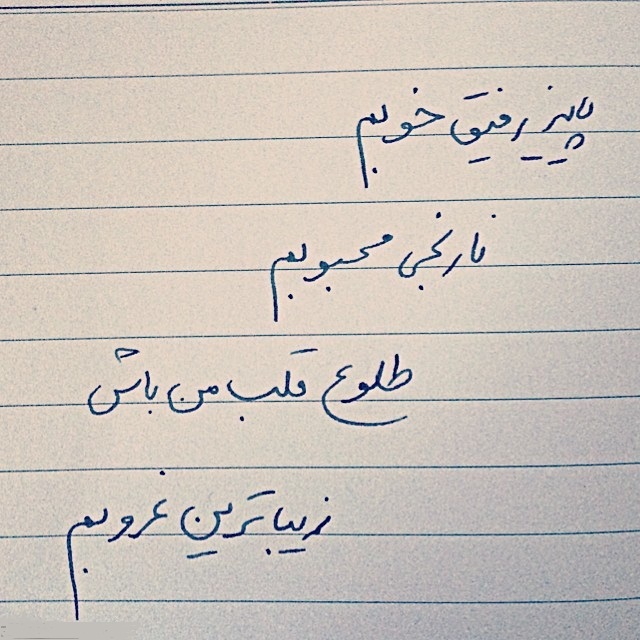 پاییز رفیق خوبم
نارنجی محبوبم
طلوع قلب من باش
زیباترین غروبم